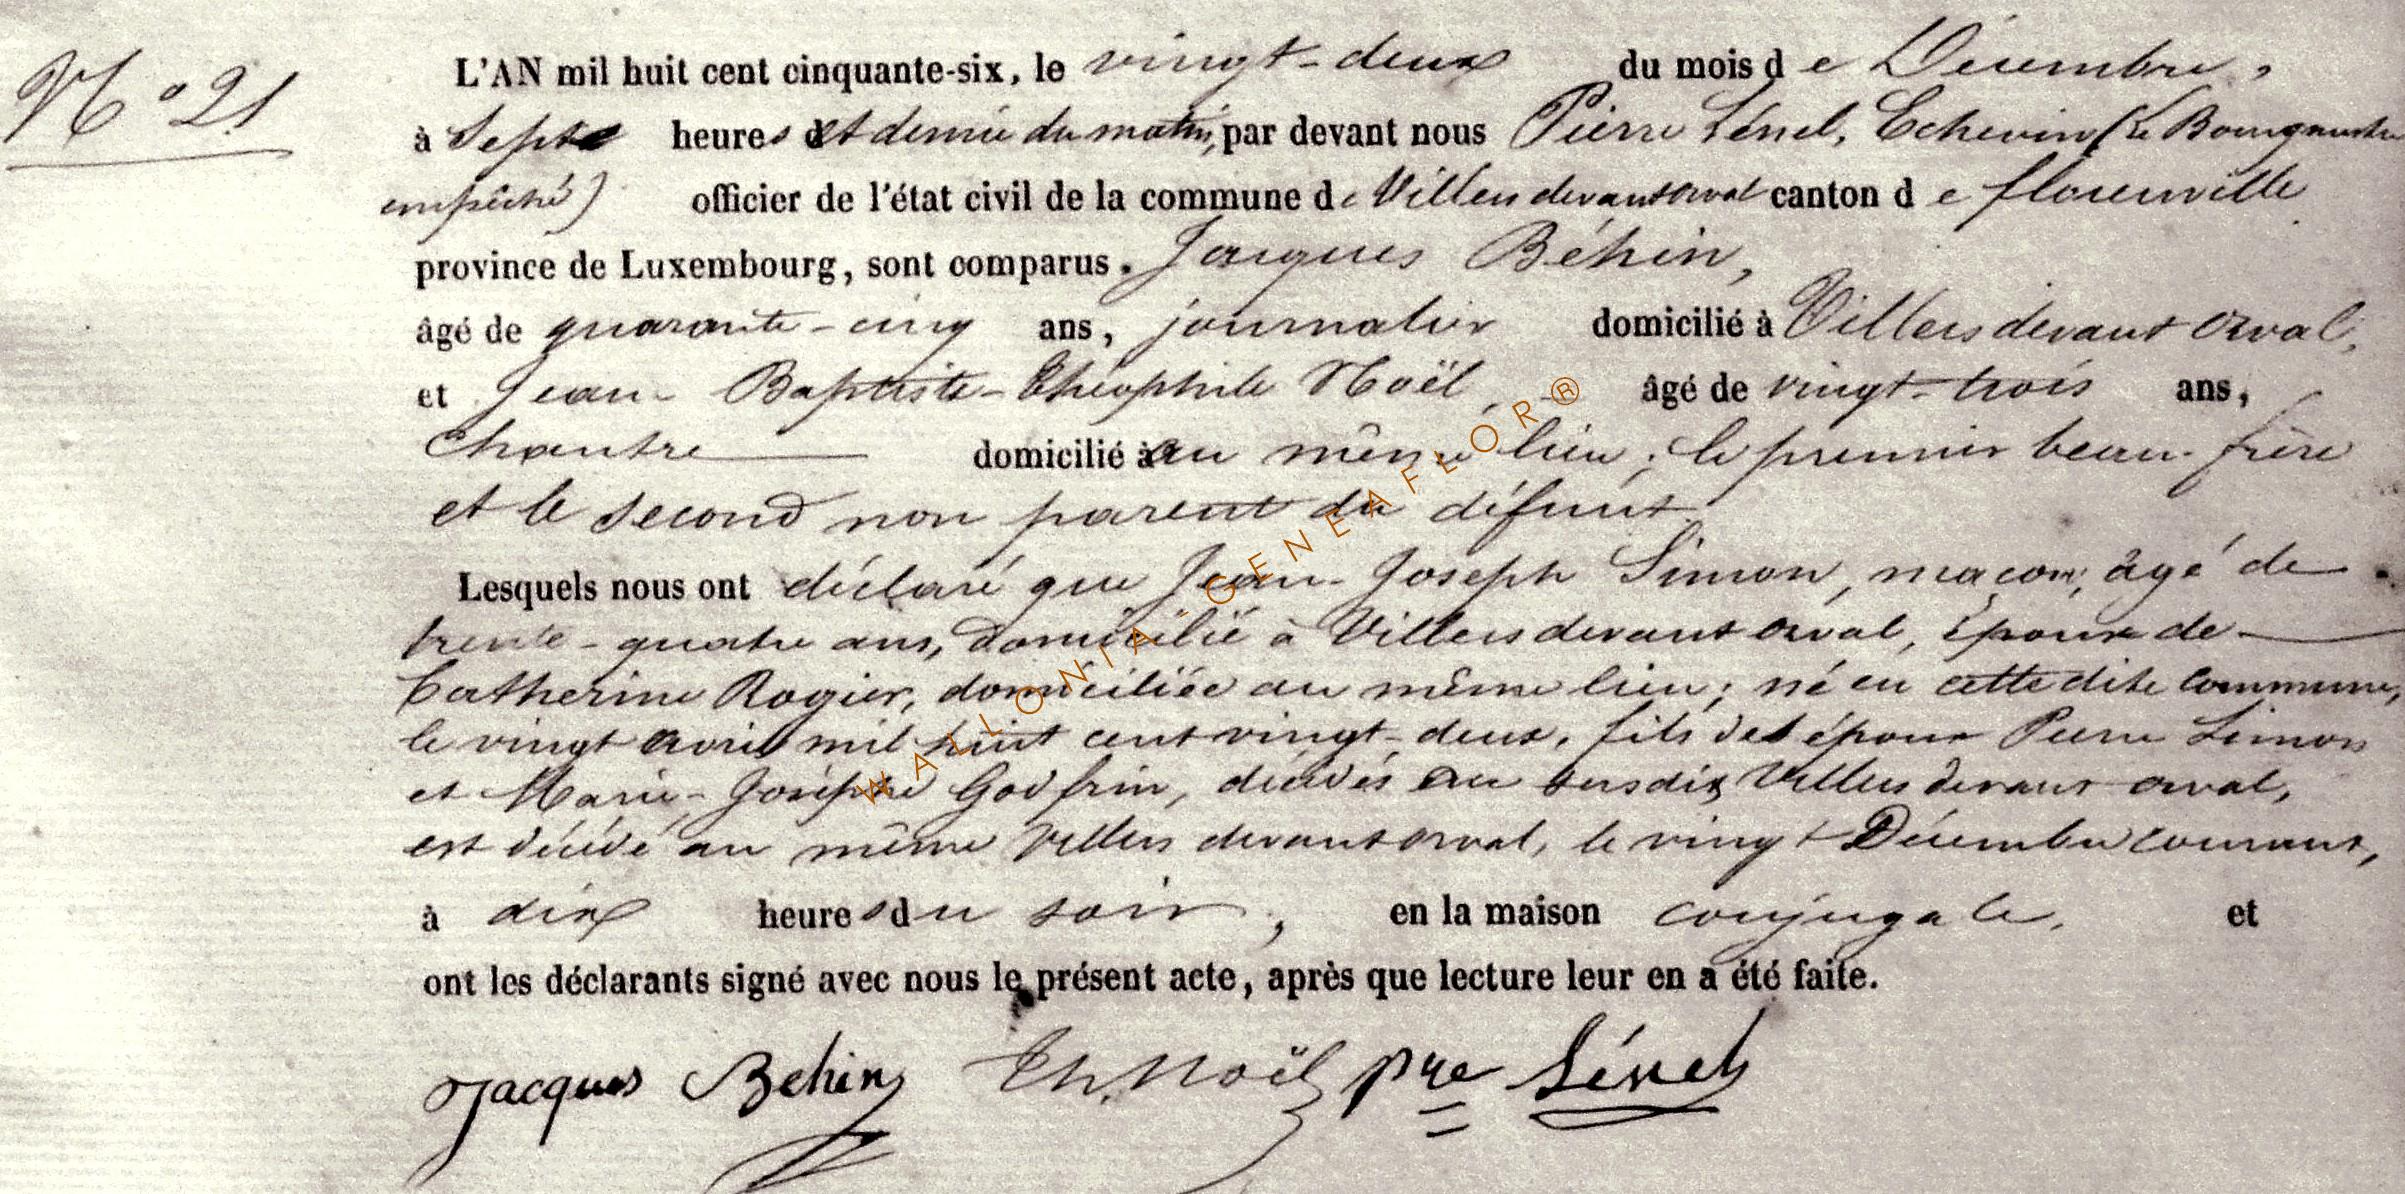 N° 21
L'AN mil huit cent cinquante-six, le vingt-deux du mois de Décembre,
à Sept heures et demie du matin, par devant nous Pierre Sénel, Echevin (Le Bourgmestre
empêché) officier de l'état civil de la commune de Villers devant orval canton de florenville
province de Luxembourg, sont comparus. Jacques Béhin,
âgé de quarante-cinq ans, journalier domicilié à Villers devant orval,
et Jean-Baptiste-Théophile Noël, âgé de vingt-trois ans,
Chantre domicilié au même lieu; le premier beau-frère
et le second non parent du défunt
Lesquels nous ont déclaré que Jean-Joseph Simon, maçon, âgé de
trente-quatre ans, domicilié à Villers devant orval, époux de
Catherine Rogier, domiciliée au même lieu; né en cette dite commune,
le vingt avril mil huit cent vingt-deux, fils des époux Pierre Simon
et Marie-Josèphe Godfrin, décédés au susdit Villers devant orval,
est décédé au même Villers devant orval, le vingt Décembre courant,
à dix heures du soir, en la maison conjugale, et
ont les déclarants signé avec nous le présent acte, après que lecture leur en a été faite.
Jacques Behin Th. Noël Pre Sénel
WALLONIA-GENEAFLOR®